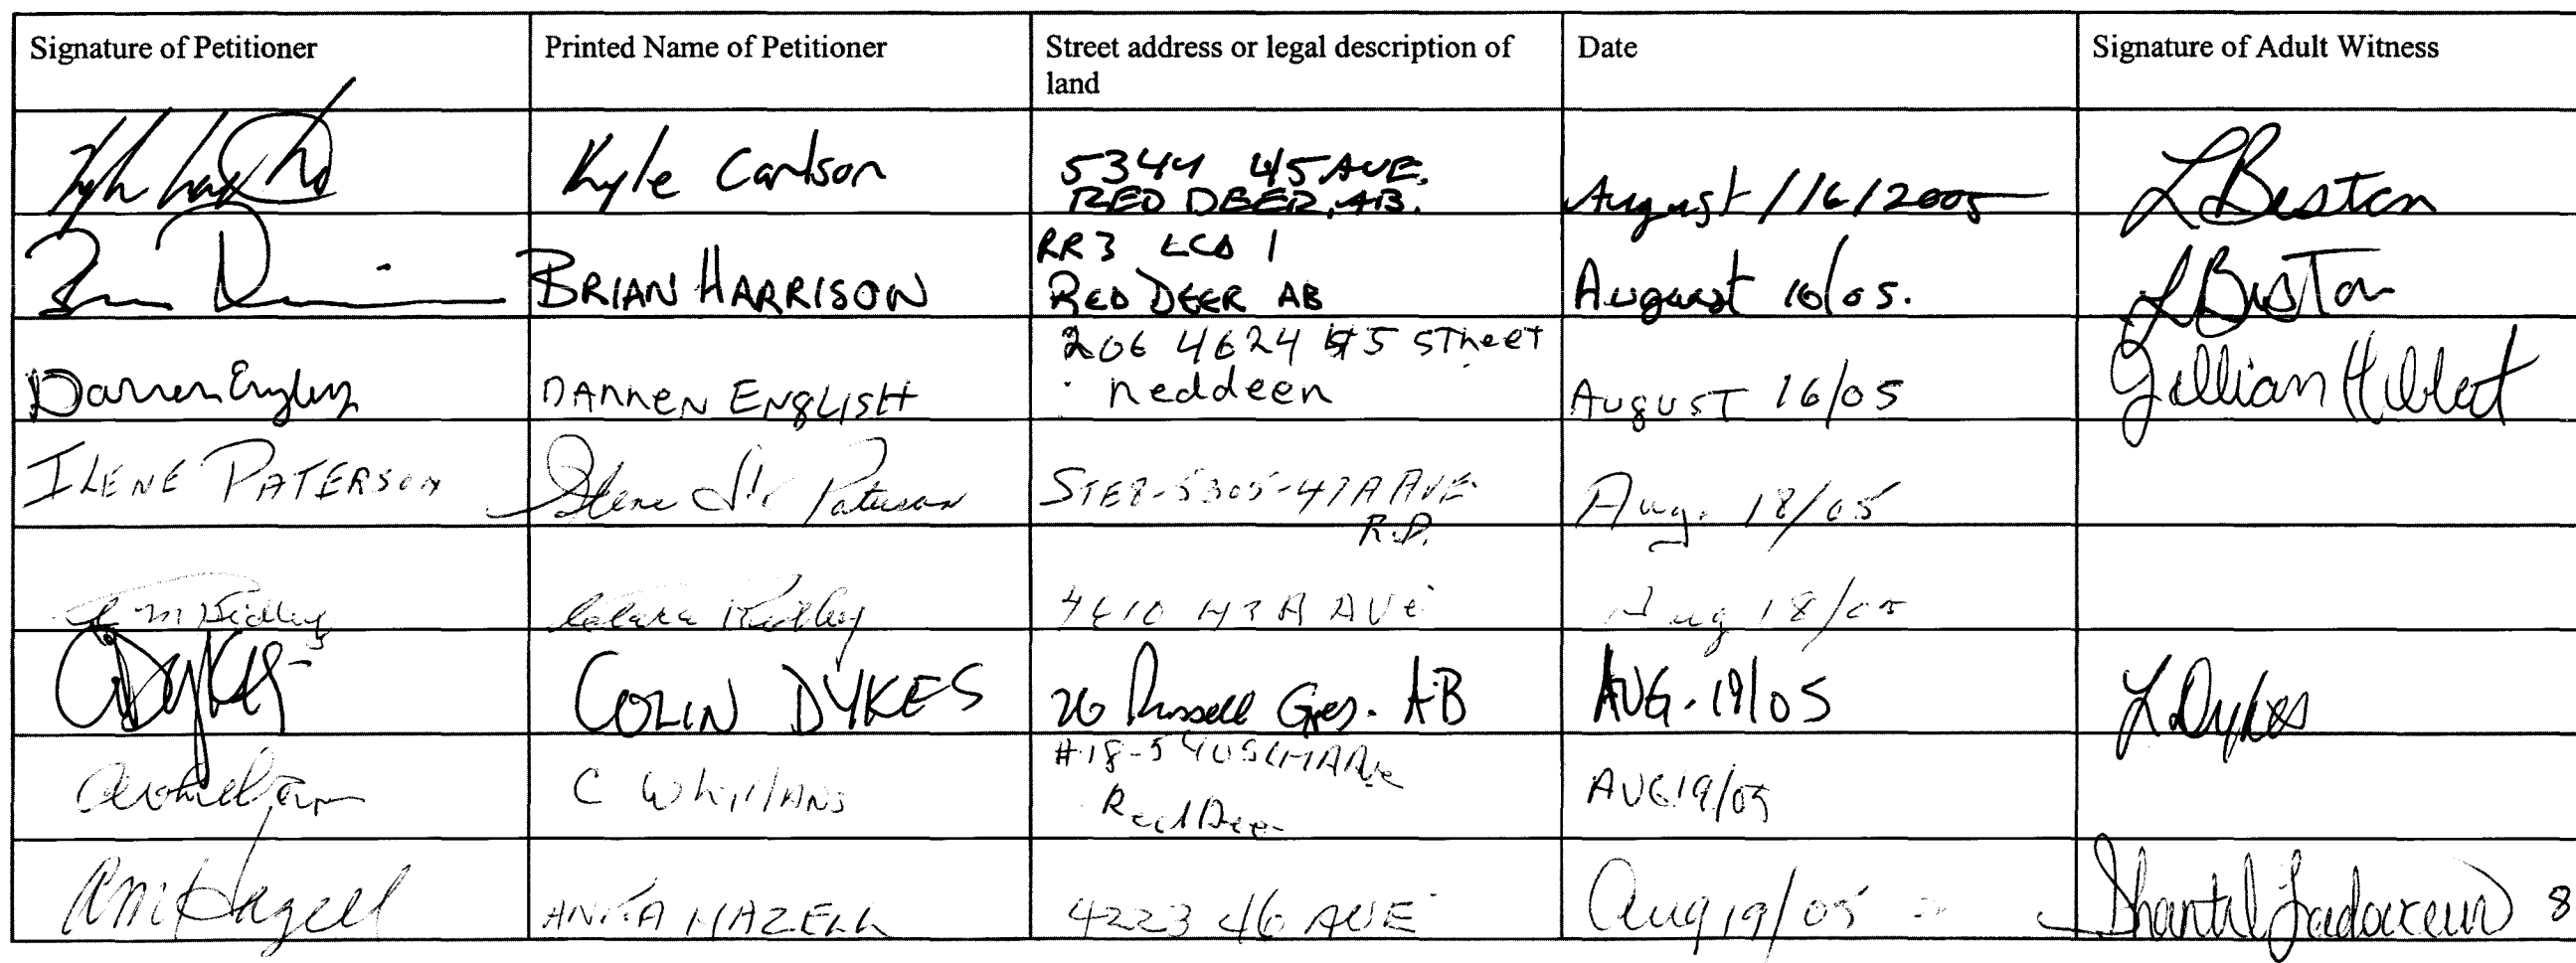 Signature of Petitioner
Printed Name of Petitioner
Street address or legal description of
land
Date
Signature of Adult Witness
Kyle Carlson
5344 45 AVE.
RED DEER, AB.
August /16/2005
L Beston
BRIAN HARRISON
RR3 LCD 1
RED DEER AB
August 16/05.
L Beston
Darren English
DARREN ENGLISH
206 4624 45 Street
reddeer
AUGUST 16/05
Gillian Hibbert
ILENE PATERSON
Ilene Paterson
STE 8-5305-47A AVE
R.D.
Aug. 18/05
Ridley
Clara Ridley
4610 43A AVE
Aug 18/05
C Dykes
COLIN DYKES
26 Russell Cres. AB
AUG. 19/05
L Dykes
C Whillans
#18-5405 Ave
Red Deer
AUG 19/05
Hazell
ANITA HAZELL
4223 46 AVE
Aug 19/05
Shantal Ladouceur
8